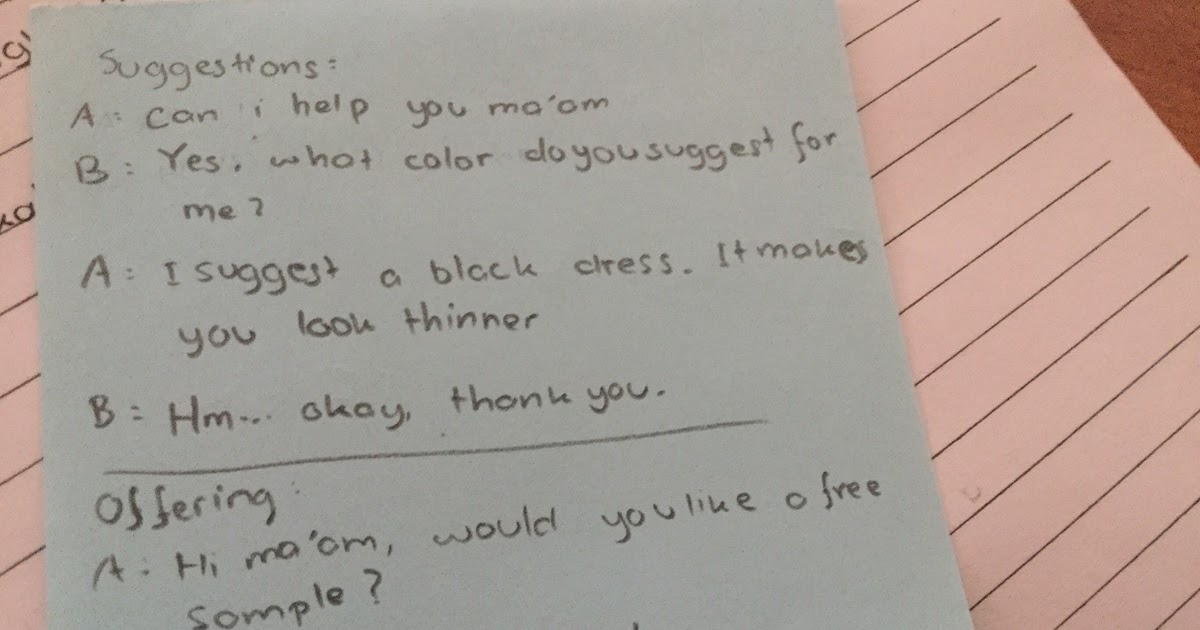 Suggestions:
A: can i help you ma'am
B: Yes. what color do you suggest for
me?
A: I suggest a black dress. It makes
you look thinner
B: Hm... okay, thank you.
Offering:
A: Hi ma'am, would you like a free
sample?